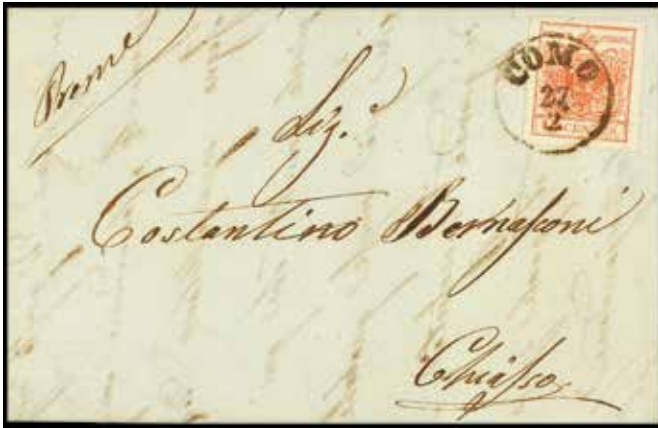 Preme
COMO
27
2
CENTES
Sig.r
Costantino Bernasconi
Chiasso